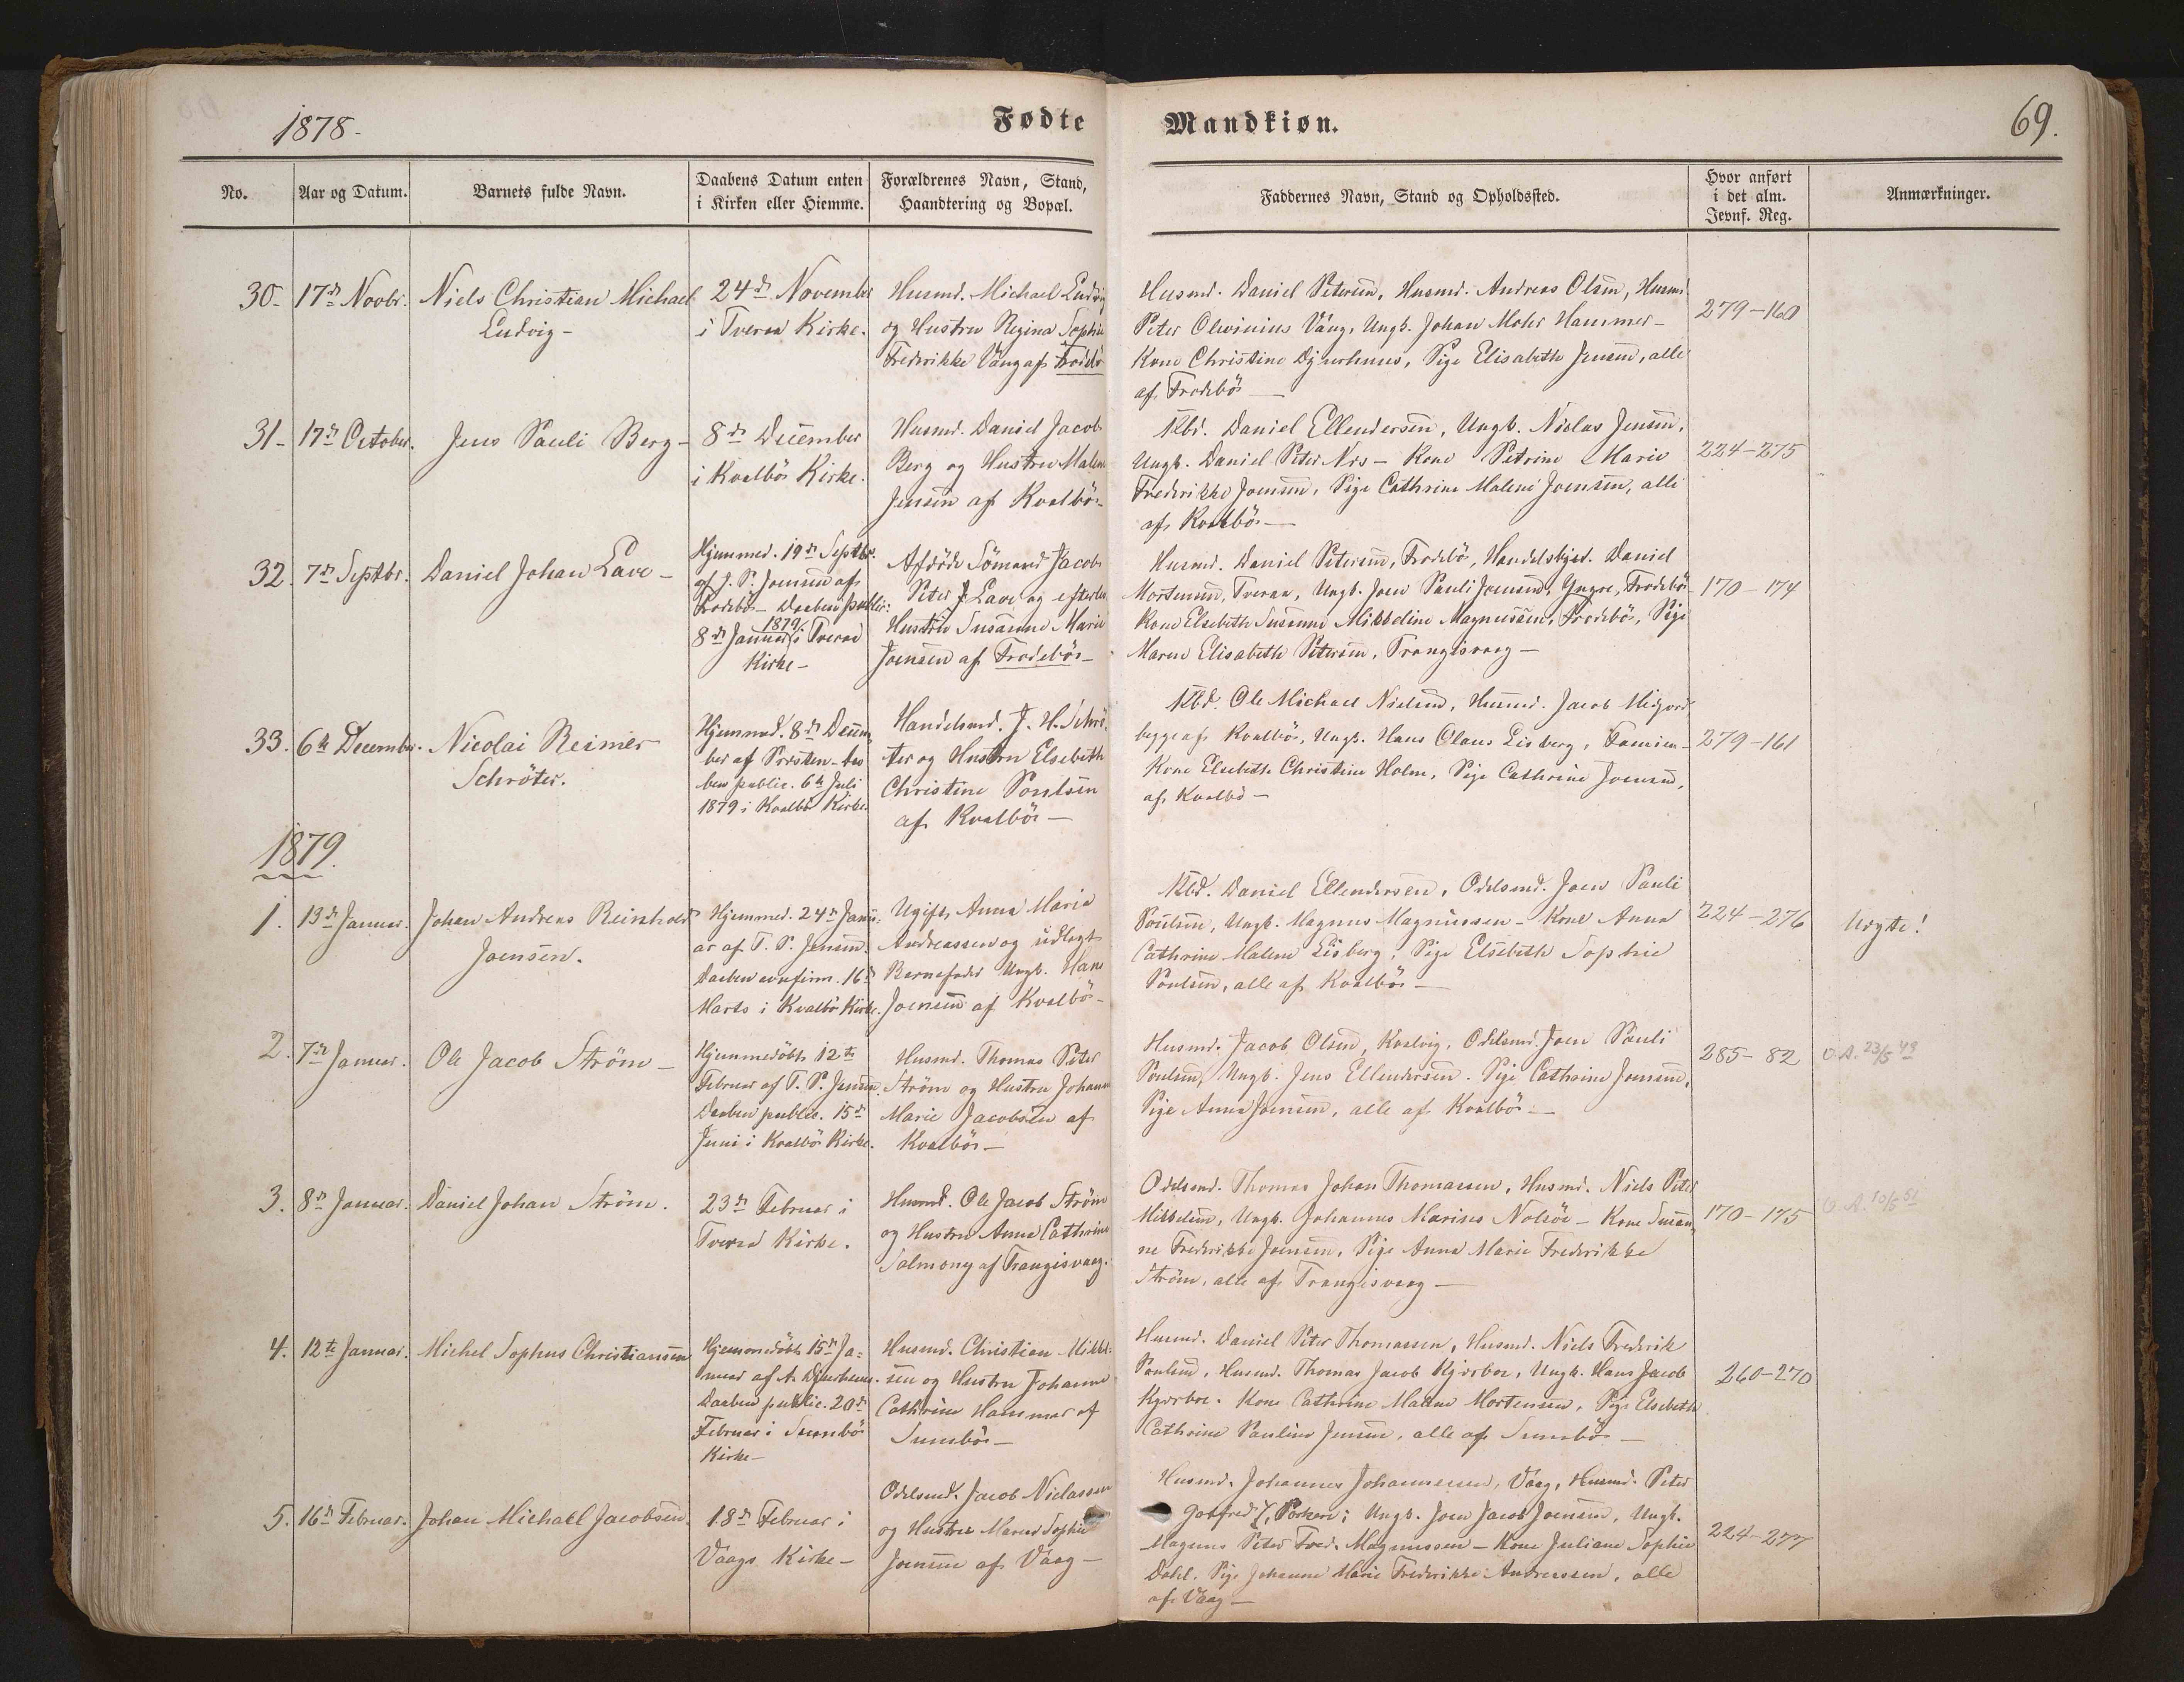 1878.
Fødte
Mandkiøn.
69.
No.
Aar og Datum.
Barnets fulde Navn.
Daabens Datum enten
i Kirken eller Hiemme.
Forældrenes Navn, Stand,
Haandtering og Bopæl.
Faddernes Navn, Stand og Opholdssted.
Hvor anført
i det alm.
Jevnf. Reg.
Anmærkninger.
30. 17de Novbr. Niels Christian Michael
Ludvig
24de November
i Tveraa Kirke.
Husmd. Michael Ludvig
og Hustru Regina Sophie
Frederikke Vang af Frodebö
Husmd. Daniel Petersen, Husmd. Andreas Olsen, Husmd
Peter Olevinius Vang, Ungk. Johan Mohr Hammer
Kone Christine Djurhuus, Pige Elisabeth Jensen, alle
af Frodebö
279-160
31. 17de October. Jens Pauli Berg
8de December
i Kvalbö Kirke.
Husmd. Daniel Jacob
Berg og Hustru Malene
Jensen af Kvalbö
Kbd. Daniel Ellendersen, Ungk. Niclas Jensen,
Ungk. Daniel Peter Nes - Kone Petrine Marie
Frederikke Joensen, Pige Cathrine Malene Joensen, alle
af Kvalbö
224-275
32. 7de Septbr. Daniel Johan Lave
Hjemmed. 19de Septbr.
af J. P. Joensen af
Frodebö - Daaben public:
8de Januar 1879 i Tveraa
Kirke
Afdöde Sömand Jacob
Peter J Lave og efterlev
Hustru Susanne Marie
Joensen af Frodebö
Husmd. Daniel Petersen, Frodebö, Handelsbest. Daniel
Mortensen, Tveraa, Ungk. Joen Pauli Joensen, Yngre, Frodebö
Kone Elsebeth Susanne Mikkeline Magnussen, Frodebö, Pige
Maren Elisabeth Petersen, Trangisvaag
170-174
33. 6te December. Nicolai Reimer
Schröter.
Hjemmed. 8de Decem
ber af Præsten - Daa
ben public. 6te Juli
1879 i Kvalbö Kirke.
Handelsmd. J. H. Schrö
ter og Hustru Elsebeth
Christine Poulsen
af Kvalbö
Kbd. Ole Michael Nielsen, Husmd. Jacob Migjord
begge af Kvalbö, Ungk. Hans Claus Lisberg, Famien
Kone Elsebeth Christine Holm, Pige Cathrine Joensen,
af Kvalbö
279-161
1879.
1. 13de Januar. Johan Andreas Reinhold
Joensen.
Hjemmed. 24de Janu
ar af T. P. Jensen.
Daaben confirm. 16de
Marts i Kvalbö Kirke.
Ugift Anna Maria
Andreassen og udlagt
Barnefader Ungk. Hans
Joensen af Kvalbö
Kbd. Daniel Ellendersen, Odelsmd. Joen Pauli
Poulsen, Ungk. Magnus Magnussen - Kone Anna
Cathrine Malene Lisberg, Pige Elsebeth Sophie
Poulsen, alle af Kvalbö
224-276
Uægte!
2. 7de Januar. Ole Jacob Ström
Hjemmedöbt 12te
Februar af T. P. Jensen
Daaben public. 15de
Juni i Kvalbö Kirke.
Husmd. Thomas Peter
Ström og Hustru Johanne
Marie Jacobsen af
Kvalbö
Husmd. Jacob Olsen, Kvalvig, Odelsmd. Joen Pauli
Poulsen, Ungk. Jens Ellendersen. Pige Cathrine Joensen,
Pige Anna Joensen, alle af Kvalbö
285-82
O.A. 23/5 49
3. 8de Januar. Daniel Johan Ström.
23de Februar i
Tveraa Kirke.
Husmd. Ole Jacob Ström
og Hustru Anna Cathrine
Salmony af Trangisvaag.
Odelsmd. Thomas Johan Thomassen, Husmd. Niels Peter
Mikkelsen, Ungk. Johannes Marius Nolsöe - Kone Susan
ne Frederikke Joensen, Pige Anna Marie Frederikke
Ström, alle af Trangisvaag
170-175
O.A. 10/5 51
4. 12te Januar. Michel Sophus Christiansen
Hjemmedöbt 15de Ja
nuar af A. Djurhuus.
Daaben public. 20de
Februar i Sumbö
Kirke
Husmd. Christian Mikkel
sen og Hustru Johanne
Cathrine Hammer af
Sumbö
Husmd. Daniel Peter Thomassen, Husmd. Niels Frederik
Poulsen, Husmd. Thomas Jacob Kjærboe, Ungk. Hans Jacob
Kjærboe. Kone Cathrine Malene Mortensen, Pige Elsebeth
Cathrine Pauline Jensen, alle af Sumbö
260-270
5. 16de Februar. Johan Michael Jacobsen.
18de Februar i
Vaags Kirke
Odelsmd. Jacob Niclassen
og Hustru Maren Sophie
Joensen af Vaag
Husmd. Johannes Johannessen, Vaag, Husmd. Peter
Gotfred, Porkeri; Ungk. Joen Jacob Joensen, Ungk.
Magnus Peter Fred. Magnussen - Kone Juliane Sophie
Dahl. Pige Johanne Marie Frederikke Andreassen, alle
af Vaag
224-277